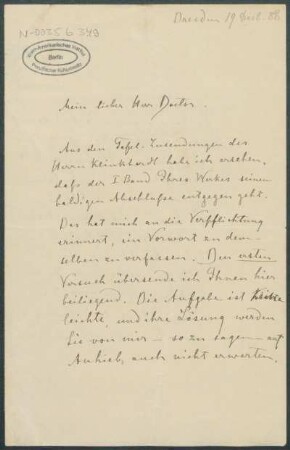 Dresden 19 Dec. 88.
N-0035 b 348
Ibero-Amerikanisches Institut
Berlin
Preußischer Kulturbesitz
Mein lieber Herr Doctor.
Aus den Tafel-Zusendungen des
Herrn Klinkhardt habe ich ersehen,
dass der I. Band Ihres Werkes seinem
baldigen Abschlusse entgegen geht.
Das hat mich an die Verpflichtung
erinnert, ein Vorwort zu dem-
selben zu verfassen. Den ersten
Versuch übersende ich Ihnen hier
beiliegend. Die Aufgabe ist keine
leichte, und ihre Lösung werden
Sie von mir – so zu sagen – auf
Anhieb, auch nicht erwarten.